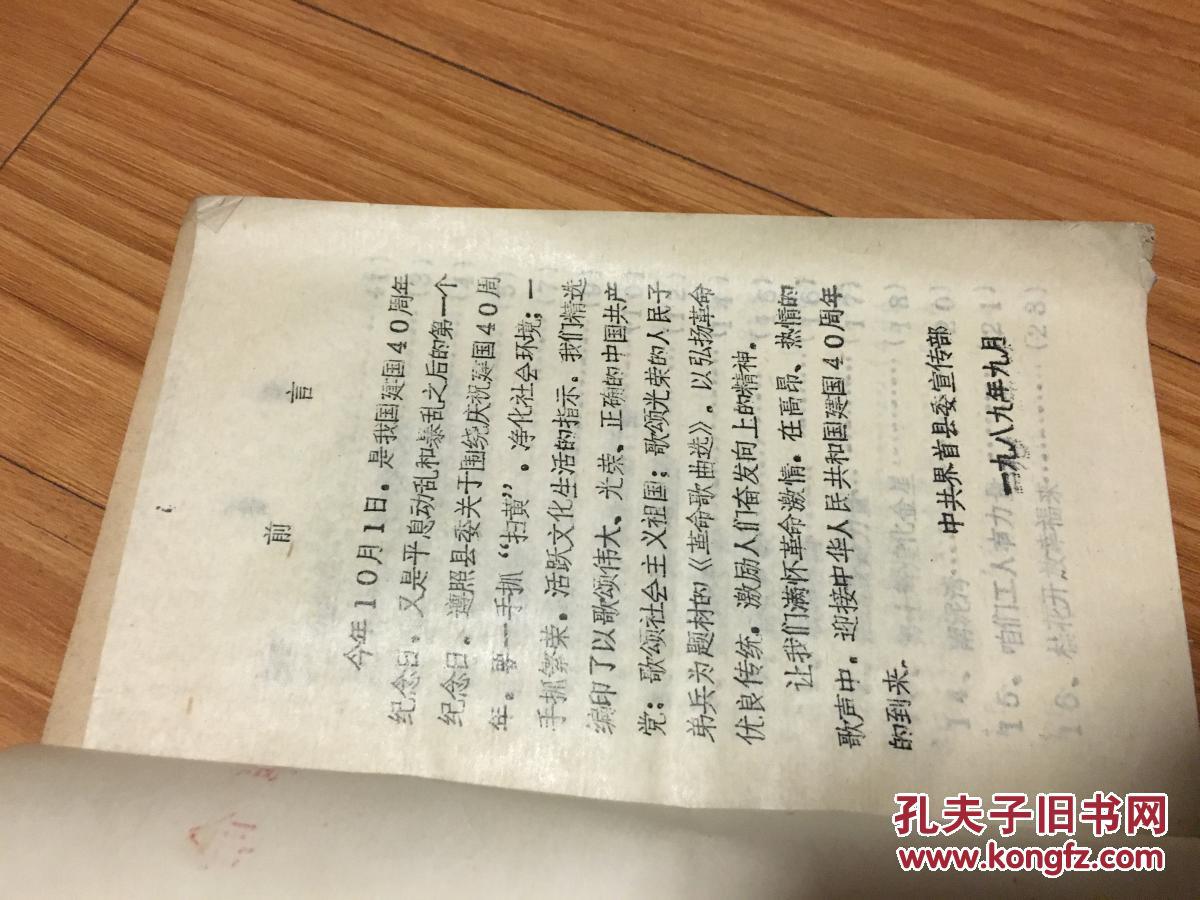 前言
今年10月1日。是我国建国40周年
纪念日。又是平息动乱和暴乱之后的第一个
纪念日。遵照县委关于围绕庆祝建国40周
年。要一手抓“扫黄”。净化社会环境；一
手抓繁荣。活跃文化生活的指示。我们精选
编印了以歌颂伟大、光荣、正确的中国共产
党：歌颂社会主义祖国；歌颂光荣的人民子
弟兵为题材的《革命歌曲选》。以弘扬革命
优良传统。激励人们奋发向上的精神。
让我们满怀革命激情。在高昂、热情的
歌声中。迎接中华人民共和国建国40周年
的到来。
中共界首县委宣传部
一九八九年九月
15、咱们工人有力
16、桂花开放幸福来…………(23)
孔夫子旧书网
www.kongfz.com